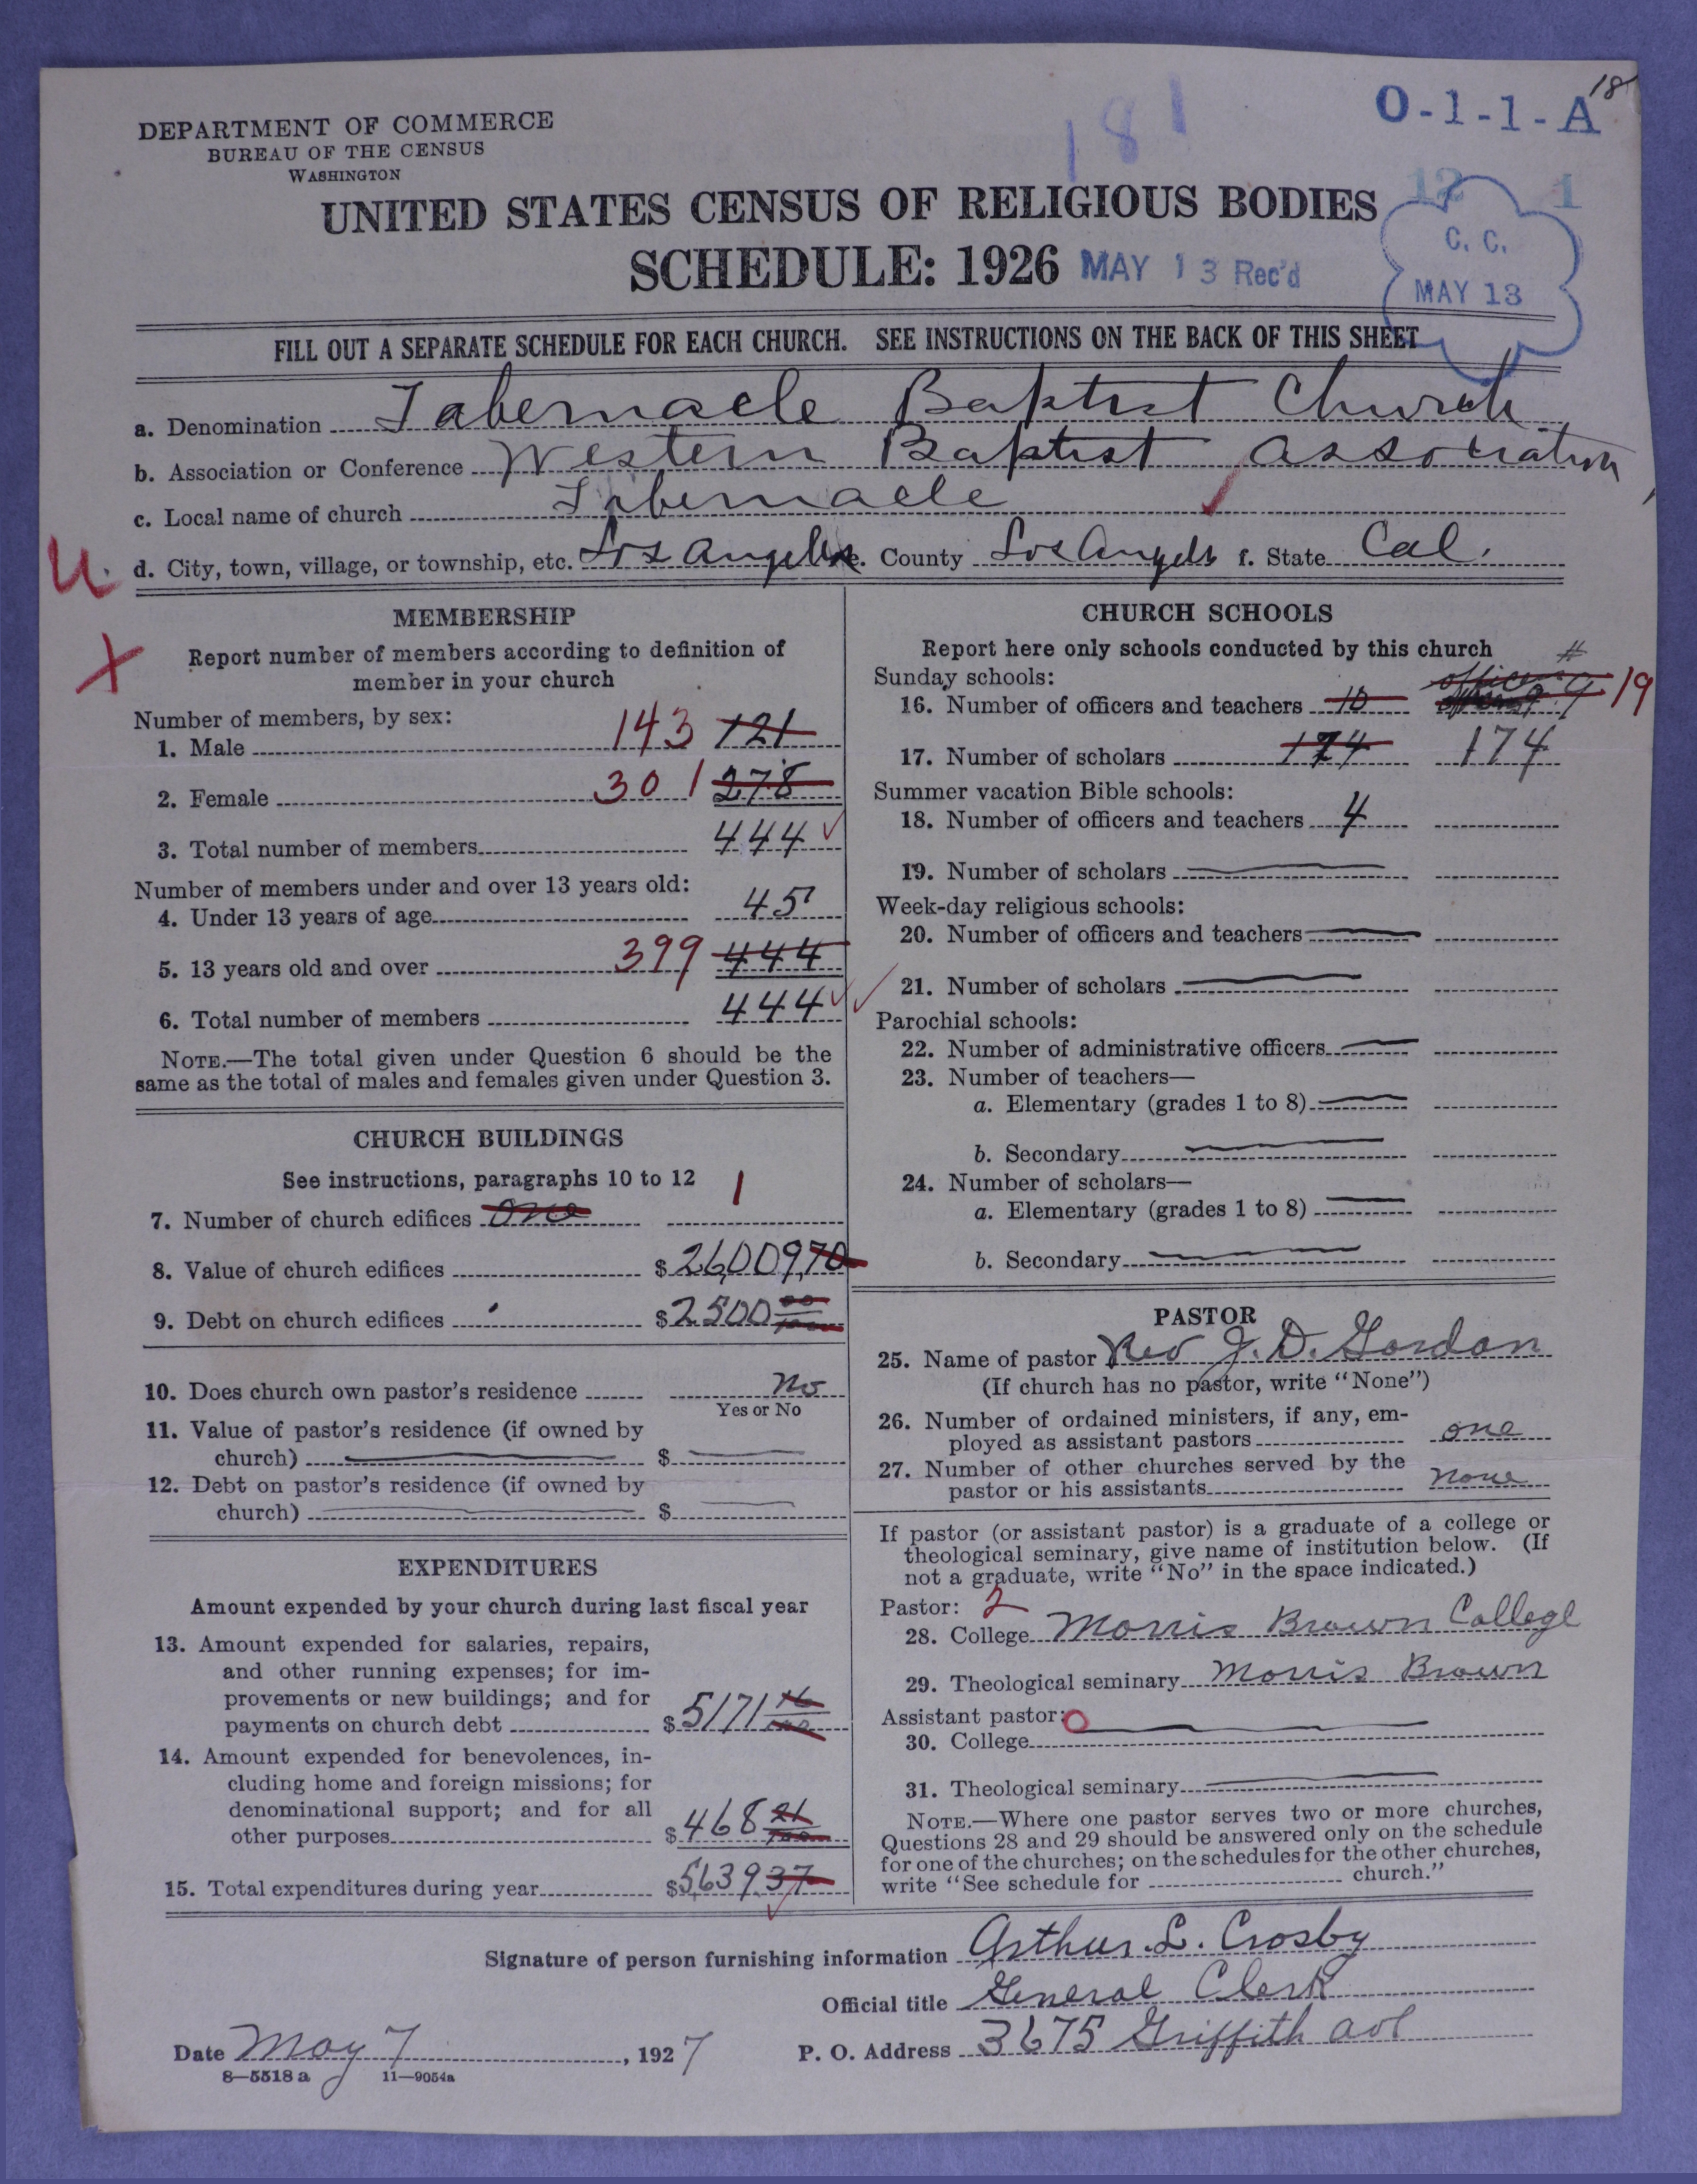 18
O-1-1-A
181
DEPARTMENT OF COMMERCE
BUREAU OF THE CENSUS
WASHINGTON
12 1
UNITED STATES CENSUS OF RELIGIOUS BODIES
SCHEDULE: 1926 MAY 13 Rec'd
C. C.
MAY 13
FILL OUT A SEPARATE SCHEDULE FOR EACH CHURCH. SEE INSTRUCTIONS ON THE BACK OF THIS SHEET
a. Denomination Tabernacle Baptist Church
b. Association or Conference Western Baptist Association
c. Local name of church Tabernacle
U. d. City, town, village, or township, etc. Los Angeles e. County Los Angels f. State Cal.
X
MEMBERSHIP
Report number of members according to definition of
member in your church
Number of members, by sex:
1. Male 143 121
2. Female 301 278
3. Total number of members 444
Number of members under and over 13 years old:
4. Under 13 years of age 45
5. 13 years old and over 399 444
6. Total number of members 444
NOTE.—The total given under Question 6 should be the
same as the total of males and females given under Question 3.
CHURCH BUILDINGS
See instructions, paragraphs 10 to 12 1
7. Number of church edifices one
8. Value of church edifices $ 26,009,70
9. Debt on church edifices $ 2500 00
10. Does church own pastor's residence no
Yes or No
11. Value of pastor's residence (if owned by
church) $
12. Debt on pastor's residence (if owned by
church) $
EXPENDITURES
Amount expended by your church during last fiscal year
13. Amount expended for salaries, repairs,
and other running expenses; for im-
provements or new buildings; and for
payments on church debt $ 5171 16/100
14. Amount expended for benevolences, in-
cluding home and foreign missions; for
denominational support; and for all
other purposes $ 468 21/100
15. Total expenditures during year $ 5,639.37
CHURCH SCHOOLS
Report here only schools conducted by this church
Sunday schools: officers #
16. Number of officers and teachers 10 9 19
17. Number of scholars 174 174
Summer vacation Bible schools:
18. Number of officers and teachers 4
19. Number of scholars
Week-day religious schools:
20. Number of officers and teachers
21. Number of scholars
Parochial schools:
22. Number of administrative officers
23. Number of teachers—
a. Elementary (grades 1 to 8)
b. Secondary
24. Number of scholars—
a. Elementary (grades 1 to 8)
b. Secondary
PASTOR
25. Name of pastor Rev J. D. Gordon
(If church has no pastor, write "None")
26. Number of ordained ministers, if any, em-
ployed as assistant pastors one
27. Number of other churches served by the
pastor or his assistants none
If pastor (or assistant pastor) is a graduate of a college or
theological seminary, give name of institution below. (If
not a graduate, write "No" in the space indicated.)
Pastor: 2
28. College Morris Brown College
29. Theological seminary Morris Brown
Assistant pastor: 0
30. College
31. Theological seminary
NOTE.—Where one pastor serves two or more churches,
Questions 28 and 29 should be answered only on the schedule
for one of the churches; on the schedules for the other churches,
write "See schedule for church."
Signature of person furnishing information Arthur L. Crosby
Official title General Clerk
Date May 7, 1927 P. O. Address 3675 Griffith ave
8—5518 a 11—9054a